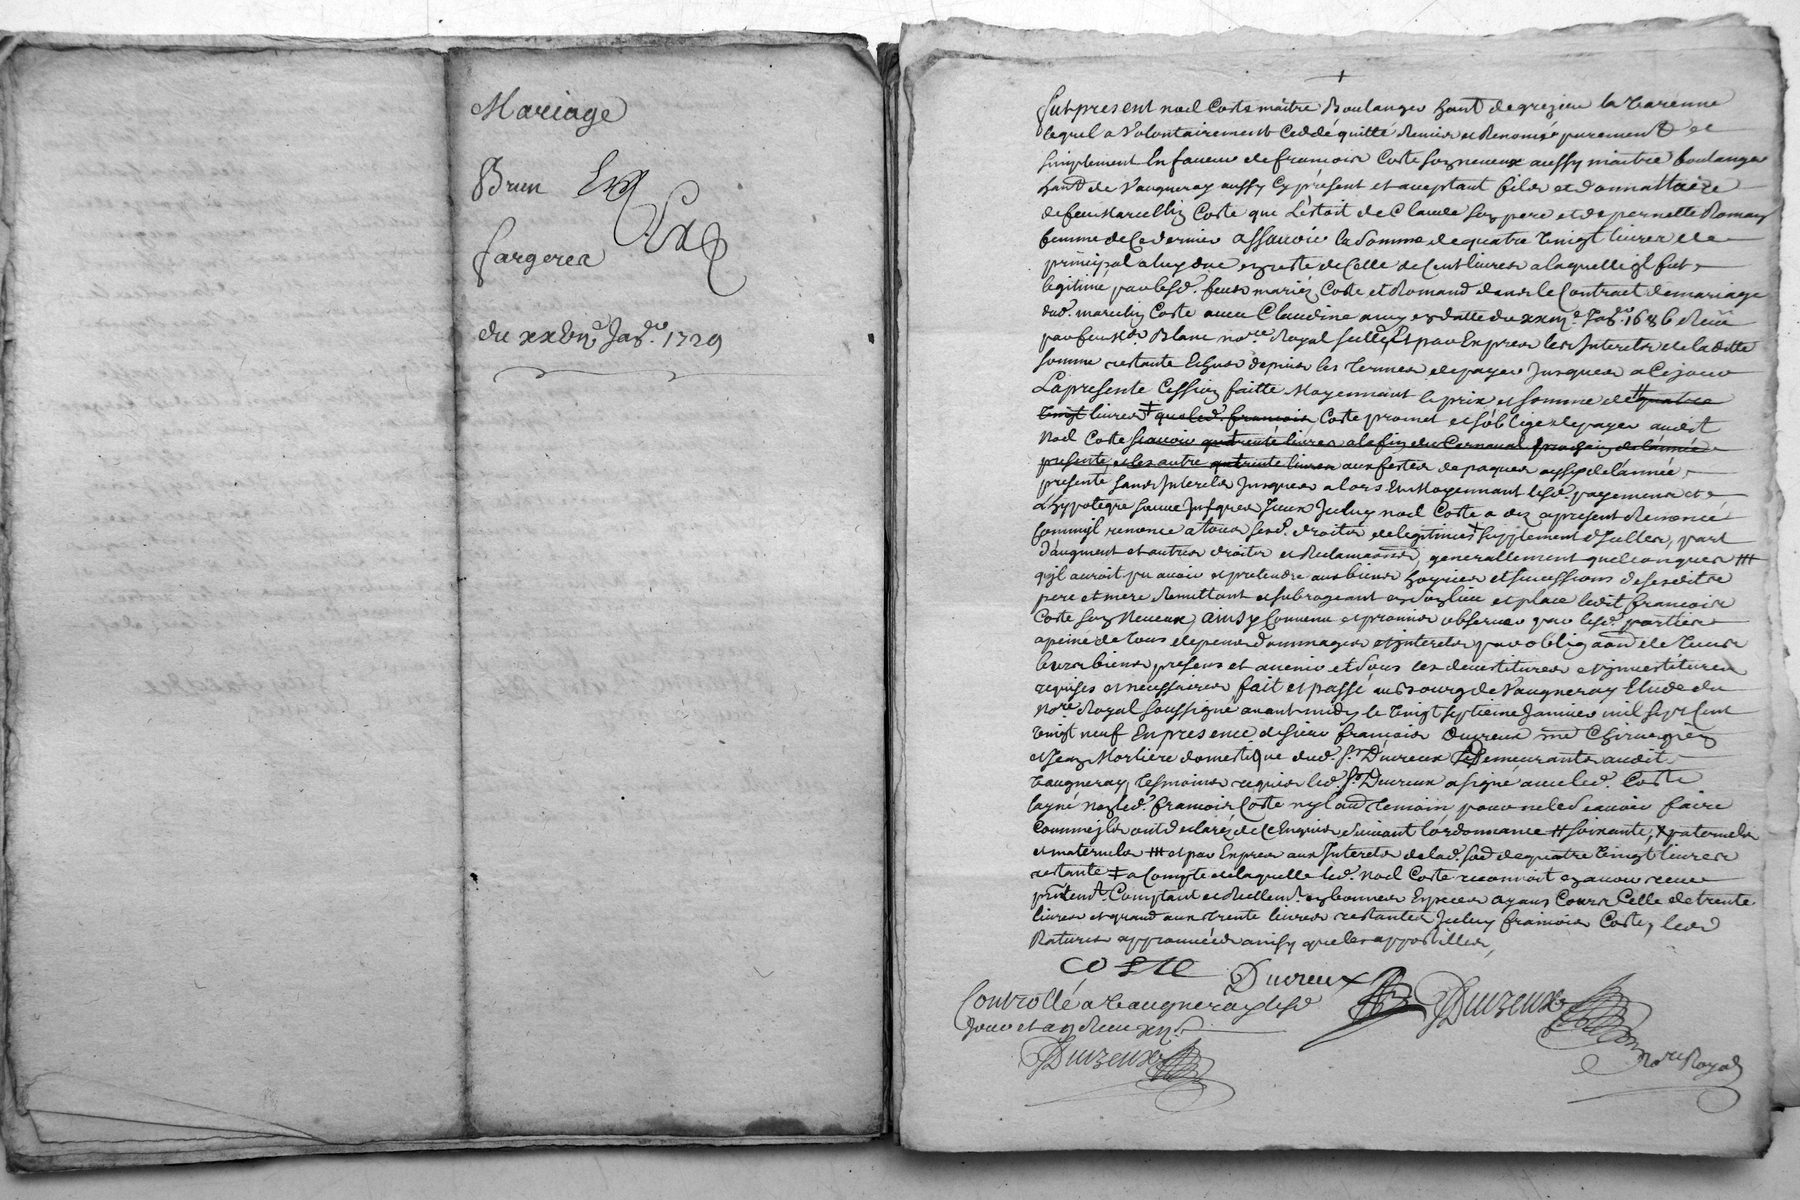 Mariage
Brun
fargeres
du xxvii^e Jar. 1729
Fut present noel Coste maitre Boulanger hant de grezieu la varenne
lequel a volontairement ceddé quitté Remis et Renoncé purement et
simplement En faveur de francois Coste son neveux aussy maitre boulanger
hant de Vaugneray aussy cy présent et aceptant fils et donnattaire
de feu Marcellin Coste qui L'estoit de Claude son pere et de pernette Romany
femme de Ce dernier assavoir la somme de quatre vingt livres de
principal a luy due en reste de Celle de Cent livres a laquelle il fut
legitimé par lesd. feux mariez Coste et Romand dans le Contract de mariage
dud. marcelin Coste avec Claudine en datte du 1686 Receu
par feu M^e Blanc no^re Royal Et par Expres les Interets de la ditte
somme restante Echus depuis les termes de payer Jusques a Ce jour
La presente Cession faitte Moyennant le prix et somme de # quatre
vingt livres ‡ que led. francois Coste promet et s'oblige de payer audit
Noel Coste scavoir trente livres a la fin du Carnaval prochain de l'année
presente, et les autre trente livres aux festes de paques aussy de l'année
presente sans Interets Jusques alors Et Moyennant lesd. payements et
L'hypoteque sauve Jusques Iceux Iceluy noel Coste a dez apresent Renoncé
comme il renonce a tous sesd. droits de legitimes + supplement d'icelles, part
d'augment et autres droits et Reclamaons generallement quelconques ##
qu'il auroit pu avoir et pretendre aux biens hoyries et successions de sesdits
pere et mere Remettant et subrogeant en son lieu et place ledit francois
Coste son Neveux, ainsy Convenu et promis observer par lesd. parties
a peine de tous depens dommages et interets par obligaon de tous
leurs biens presens et avenir et sous les devestitures et investitures
requises et necessaires fait et passé au Bourg de Vaugneray Etude du
No^re Royal soussigné avant midy le vingt septieme Janvier mil sept Cent
vingt neuf En presence de sieur francois Ducreux me Chirurgien
et Jean Morliere domestique dud. s^r Ducreux Demeurants audit
Vaugneray temoins requis led. s^r Ducreux a signé avec led. Coste
layné non led. francois Coste ny l'au temoin pour ne le scavoir faire
Comme ils ont declaré de Ce Enquis suivant l'ordonnance # soixante, + paternels
et maternels ## et par Expres aux Interets de lad. so^e de quatre vingt livres
restante ‡ a Compte de laquelle led. Noel Coste reconnoit en avoir receu
Comptant et Reellem^t. en bonnes Especes ayans Cours Celle de trente
livres et quand aux trente livres restantes Iceluy francois Coste, les
Ratures approuvées ainsy que les appostilles,
COSTE Ducreux
Controllé a Vaugneray lesd
jour et an Receu xii s.
Duizeux
Duizeux
No^re Royal